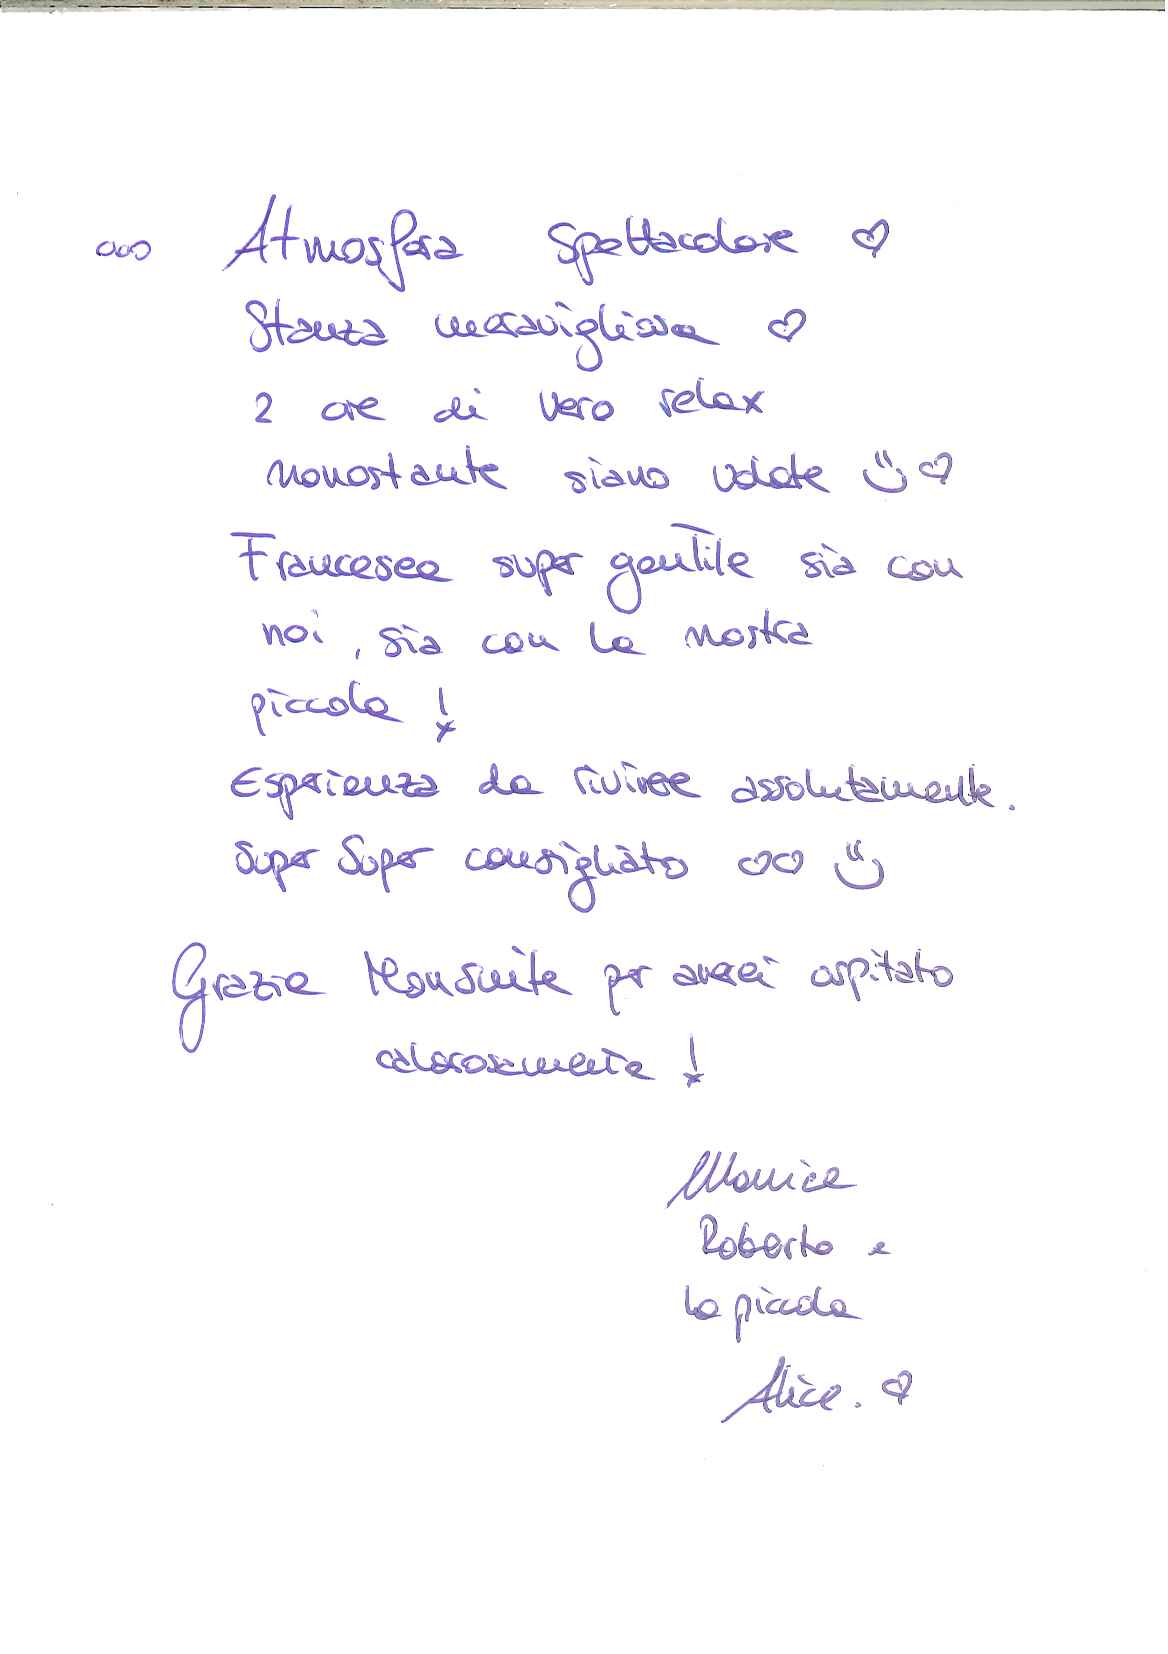 ooo Atmosfera Spettacolare ♡
Stanza meravigliosa ♡
2 ore di vero relax
nonostante siano volate ü ♡
Francesca super gentile sia con
noi, sia con la nostra
piccola !
Esperienza da rivivere assolutamente.
Super Super consigliato ♡♡ ü
Grazie MonSuite per averci ospitato
calorosamente !
Monica
Roberto e
la piccola
Alice. ♡